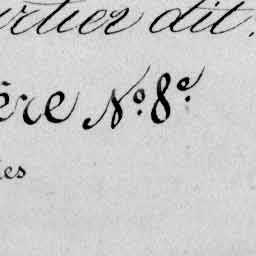 rtier dit
ère N° 8e
es